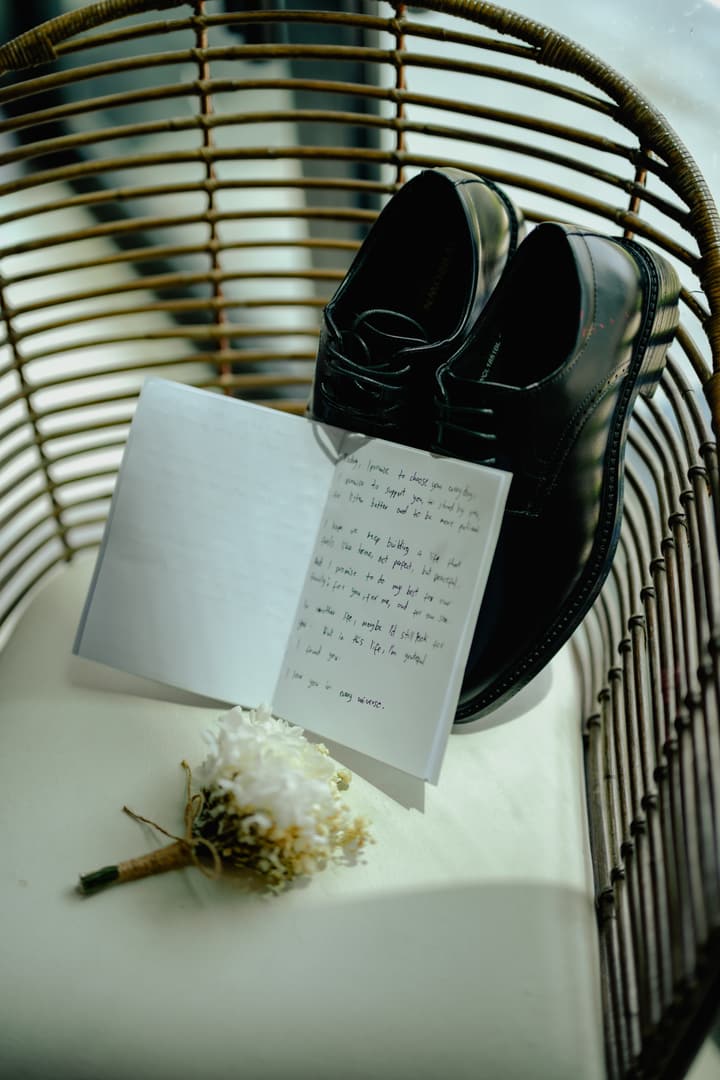 Today, I promise to choose you everyday.
I promise to support you, to stand by you,
to listen better and to be more patient.
I hope we keep building a life that
feels like home, not perfect, but peaceful.
And I promise to do my best for our
family, for you, for me, and for our son.
In another life, maybe I'd still look for
you. But in this life, I'm grateful
I found you.
I love you in every universe.